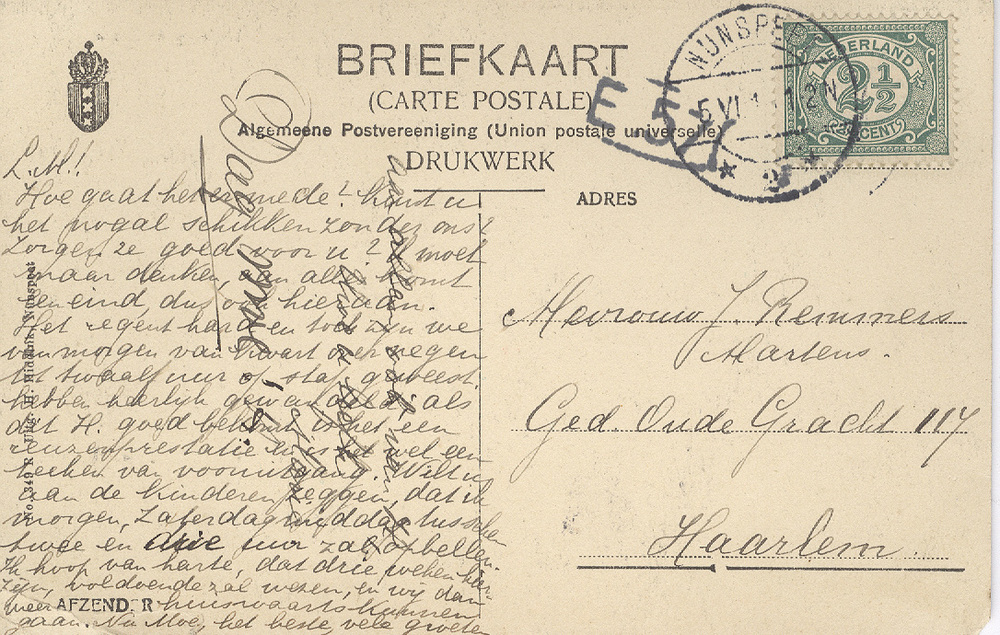 BRIEFKAART
(CARTE POSTALE)
Algemeene Postvereeniging (Union postale universelle)
DRUKWERK
ADRES
NUNSPEET
5 VI 1 12 N
NEDERLAND
2 1/2
CENT
L. M!
Hoe gaat het er mede? kunt u
het nogal schikken zonder ons?
Zorgen ze goed voor u? U moet
maar denken, aan alles komt
een eind, dus ook hieraan.
Het regent hard en toch zijn we
van morgen van kwart over negen
tot twaalf uur op stap geweest,
hebben heerlijk gewandeld; als
dat H. goed bekomt is het een
reuzenprestatie en is het wel een
teeken van vooruitgang. Wilt u
aan de kinderen zeggen, dat ik
morgen, Zaterdagmiddag tusschen
twee en drie uur zal opbellen.
Ik hoop van harte, dat drie weken hier
zijn, voldoende zal wezen, en wij dan
weer huiswaarts kunnen
gaan. Nu Moe, het beste, vele groeten
Dag
ook
AFZENDER
Uitg. H. Nunspeet
Mevrouw J. Remmers
Martens.
Ged Oude Gracht 117
Haarlem.